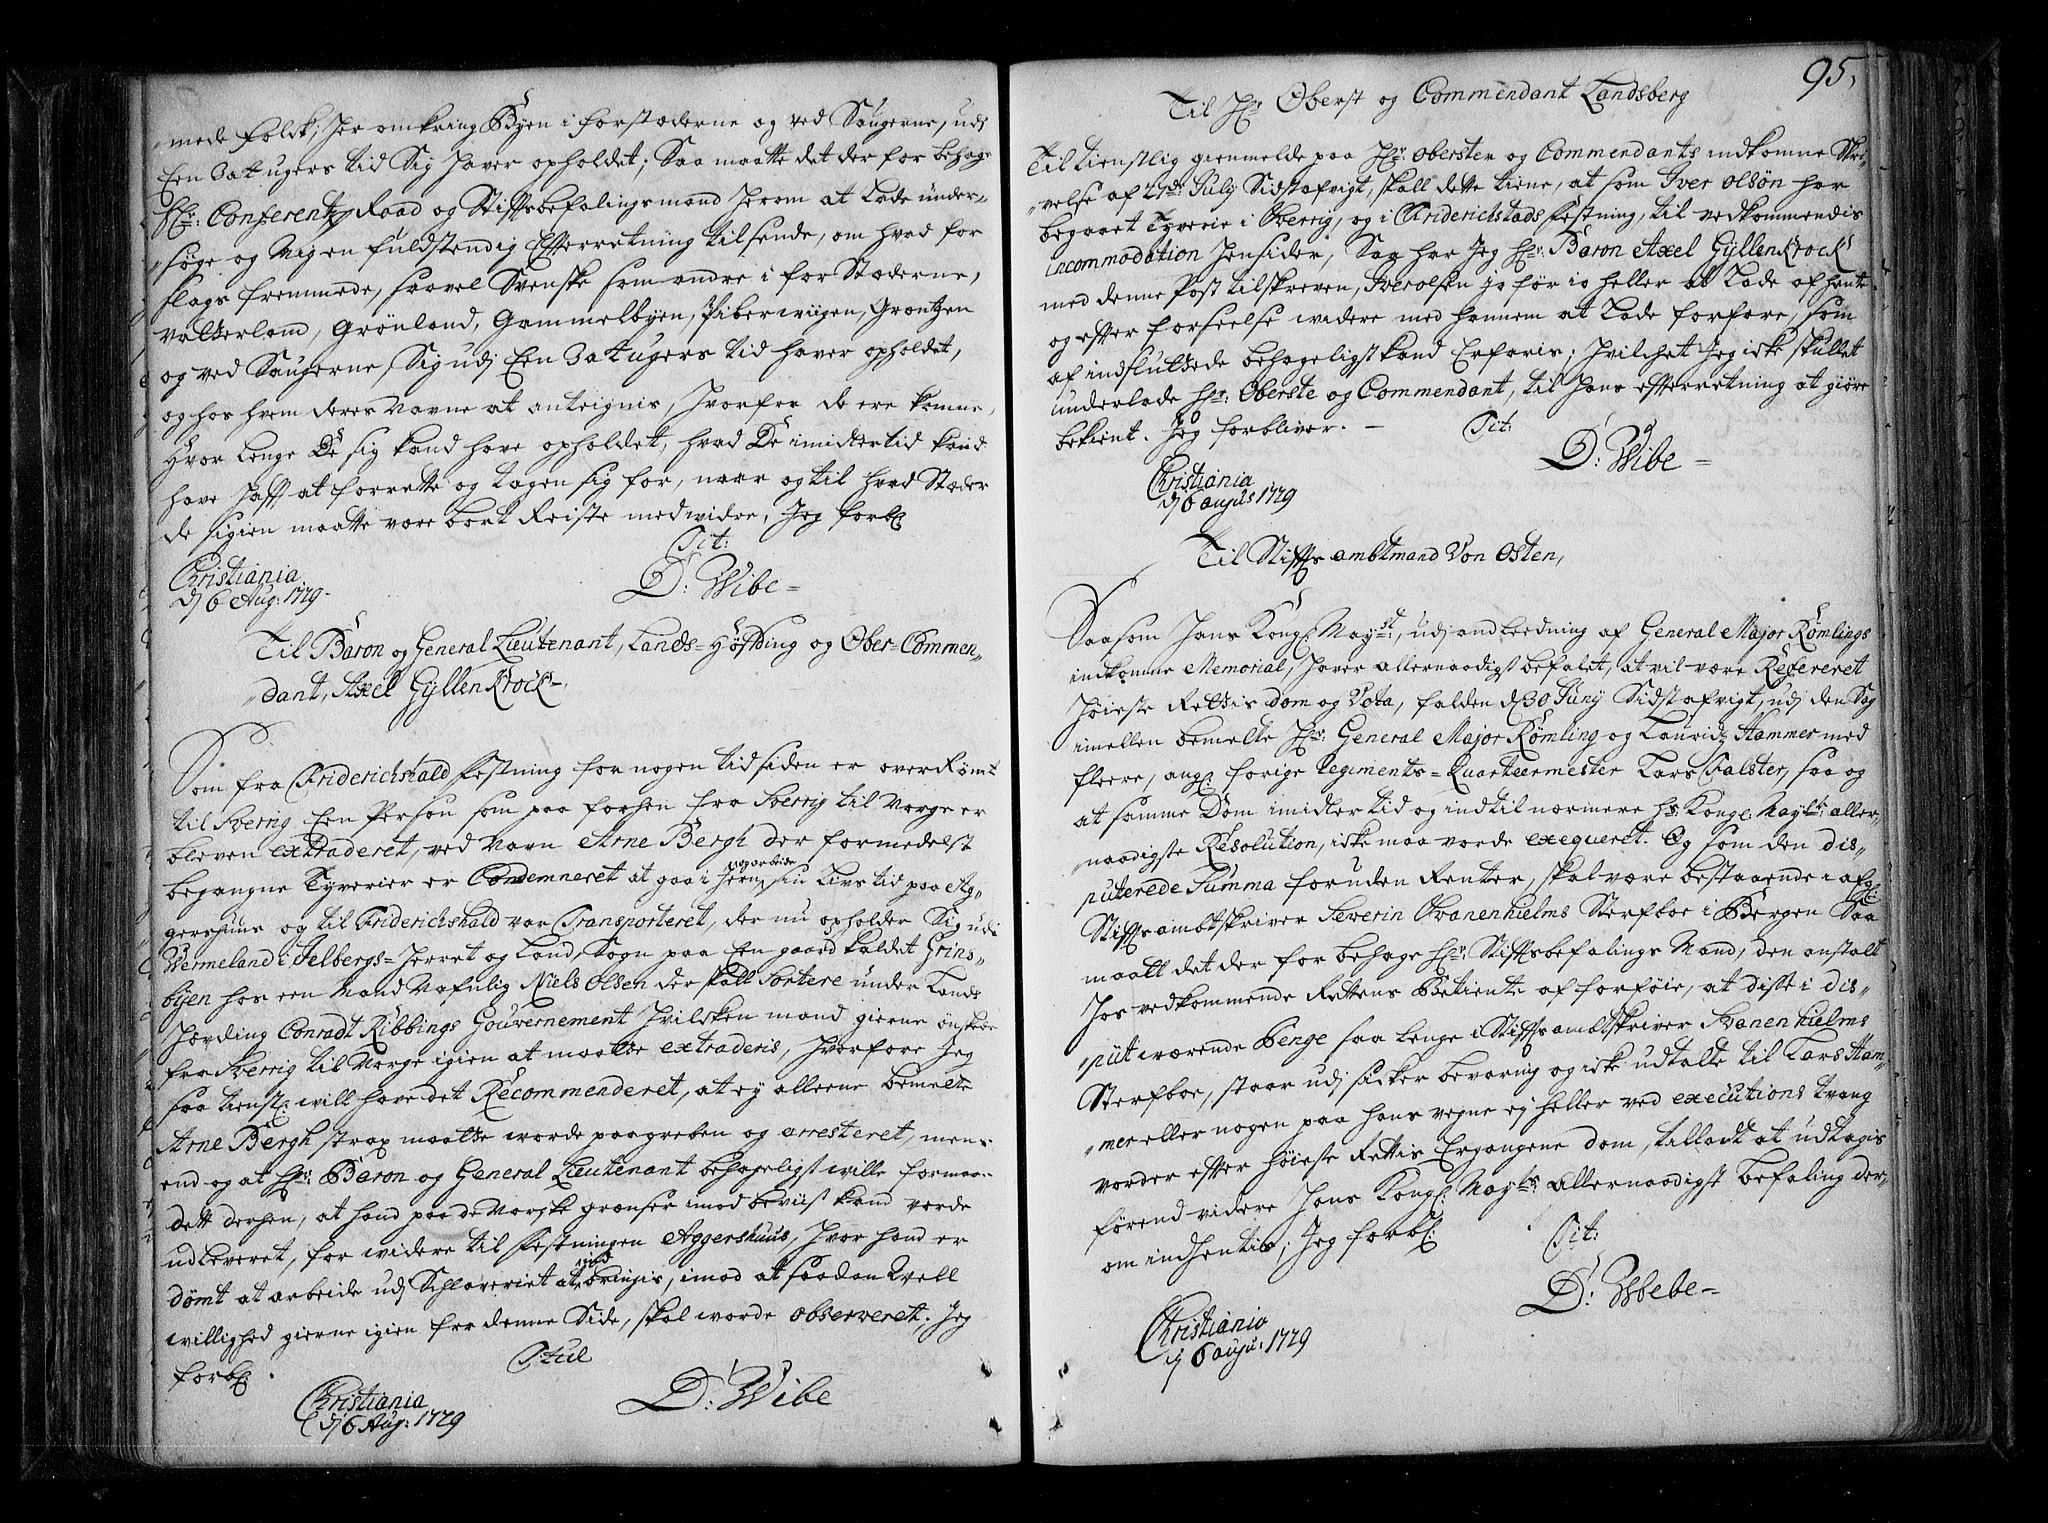 mede folck, her omkring Byen i forstæderne og ved Saugerne, udj
Een 3 a 4 ugers tid Sig haver opholdet; Saa maatte det der for behage
Hr: Conferentz Raad og Stiftsbefalingsmand herom at Lade under-
„søge og Mig en fuldstendig Efterretning tilsende, om hvad for
slags fremmede, saavel Svenske som andre i for Stæderne,
Valterløm, Grønland, Gammelbyen, Piberwiigen, Grentzen
og ved Saugerne, Sig udj Een 3 a 4 ugers tid haver opholdet,
og hos hvem deres Navne at anteignis, hvorfra de ere komne,
Hvor Lenge De sig kand have opholdet, hvad De imidlertid kand
have haft at forrette og tagen sig for, naar og til hvad Stæder
de igien maatte være bort Reiste med widre, Jeg forbl:
Tit:
Christiania
dj 6 Aug: 1729 -
D: Wibe =
Til Baron og General Lieutenant, Lands=Høfding og Ober=Commen„
„dant, Axel Gyllenkrock =.
Som fra Friderichshald festning for nogen tid siden er overRømt
til Sverrig Een Person som paa forhen fra Sverrig til Norge er
bleven extraderet, ved Navn Arne Bergh der formedelst
begangne Tyverier er Condemneret at gaa i Jern og arbeide sin Livs tid paa Ag„
gershuus og til Friderichshald var Transporteret, der nu opholder Sig udi
Vermeland i Jelbergs=Herret og Land, Sogn paa Een gaard kaldet Grins„
byen hos een Mand Nafnlig Niels Olsen der skall Sortere under Lands
Høvding Conradt Ribbings Gouvernement hvilcken mand gierne ønskes
fra Sverrig til Norge igien at maatte extraderis, hvorfore Jeg
saa tienstl: will have det Recommenderet, at ey alleene bemelte
Arne Bergh strax maatte worde paagreben og arresteret, mens
end og at Hr: Baron og General Lieutenant behageligst wille formaa-
dett derhen, at hand paa de Norske grænser imod beviist kand vorde
udleveret, for widere til festningen Aggershuus, hvor hand er
dømt at arbeide udj Schlaveriet at indbringis, imod at saadan Well
willighed gierne igien fra denne Side, skal worde observeret. Jeg
forbl: .
Titul
Christiania
dj 6 Aug: 1729
D: Wibe
95,
Til Hr Oberst og Commendant Landsberg
Til tienstlig gienmelde paa Hr: Obersten og Commendants indkomne Skri„
„velse af 27de July Sidstafvigt, skall dette tiene, at som Iver Olsøn har
begaaet Tyverie i Sverrig, og i Friderichstads festning, til vedkommendis
incommodation hensider, Saa har Jeg Hr: Baron Axel Gyllenkrock
med denne Post tilskreven, Iver olsen jo før io heller at Lade afhente
og efter forseelse widere med hannem at Lade forfare, som
af indsluttede behageligst kand Erfaris; hvilchet Jeg icke skullet
underlade Hr: Oberste og Commendant, til hans efterretning at giøre
bekient. Jeg forbliver. —
Tit:
D: Wibe =
Christiania
dj 6 augus 1729
Til Stiftsambtmand Von Osten,
Saasom Hans Kongl: Mayst:, udj andledning af General Major Rømlings
indkomne Memorial, haver allernaadigst befalet, at vil være Refereret
høieste Rettis dom og Vota, falden d 30 Juny Sidst afvigt, udj den Sag
imellen bemelte Hr: General Major Rømling og Lauridz Hammer med
fleere, angl: forige Regiments=Quarteermester Lars Falster, saa og
at samme Dom imidlertid og indtil nærmere Hs Kongl: Mayts: aller„
„naadigste Resolution, icke maa vorde exequeret. Og som den dis„
puterede Summa foruden Renter, skal være bestaaende i afg:
Stiftsambtskriver Severin Svanenhielms Sterfboe i Bergen Saa
maatt det der for behage Hr: Stiftsbefalings Mand, den anstalt
hos vedkommende Rettens Betiente af forføie, at disse i dis„
„püt wærende Penge saa Lenge i Stiftsambtskriver Svanenhielms
Sterfboe, staar udj sicker bevaring og icke udtalte til Lars Ham„
„mer eller nogen paa hans vegne ey heller ved executions tvang
vorder efter høieste Rettis Ergangene dom, tilladt at udtagis
førend videre Hans Kongl: Mayts: allernaadigst befaling der„
om indhentis; Jeg forbl:
Tit:
D: Wibe =
Christiania
dj 6 augu: 1729